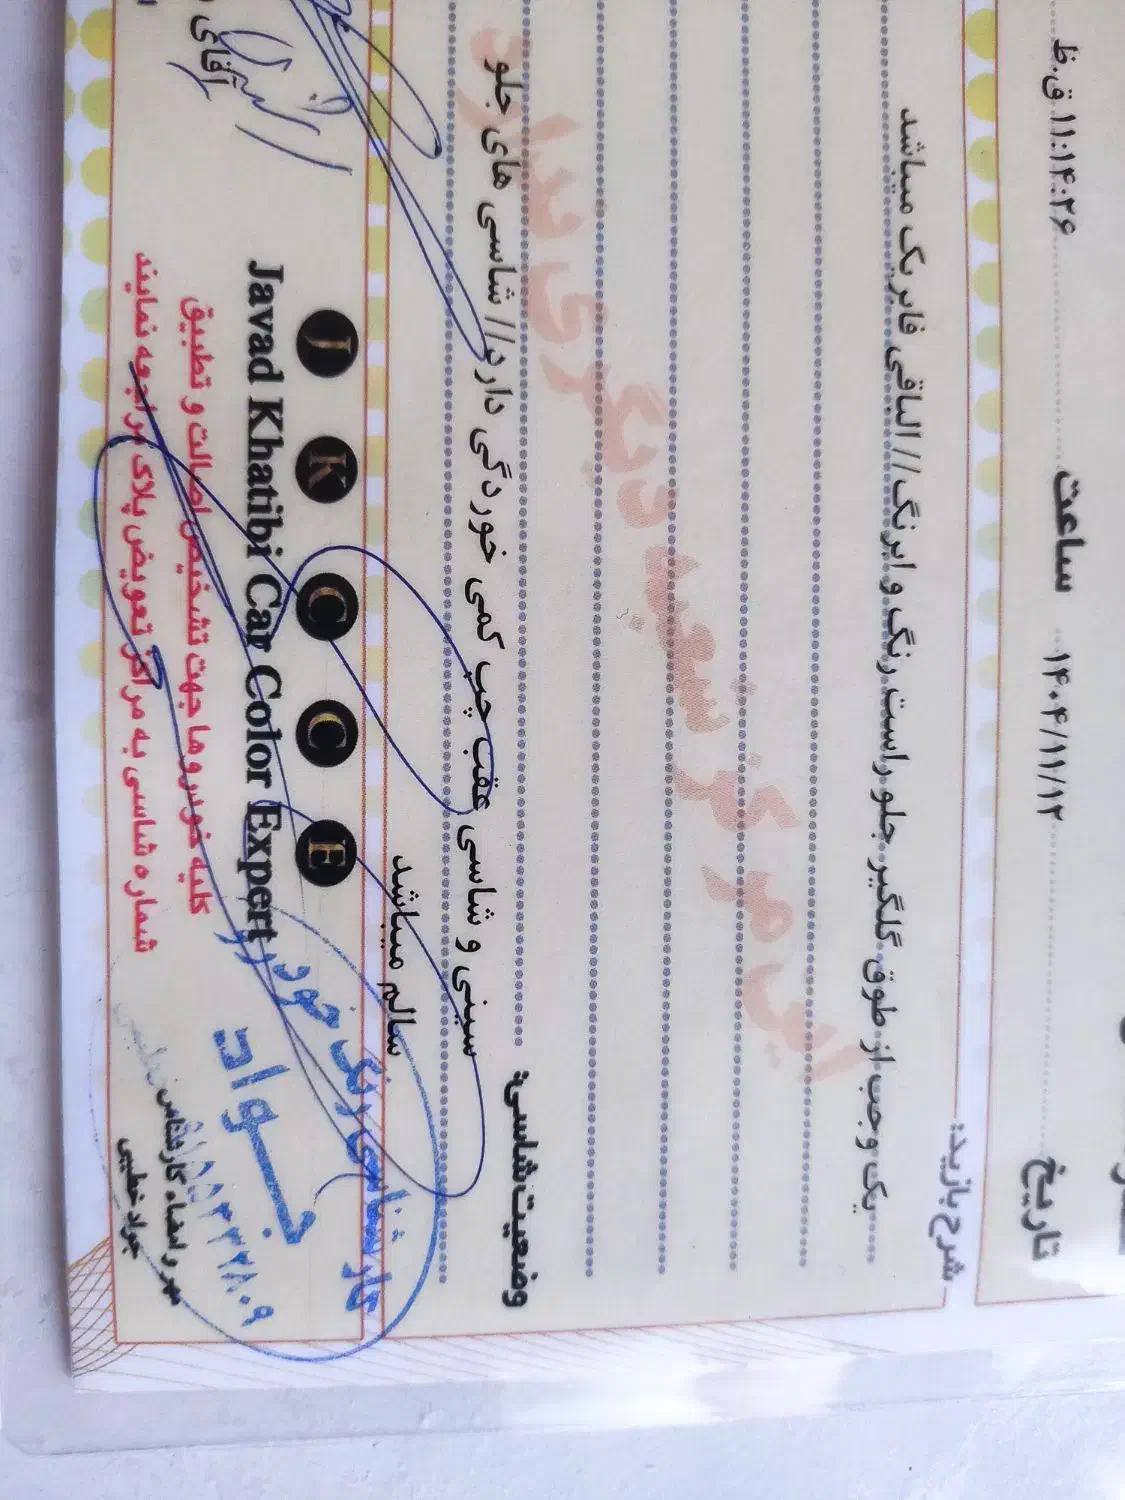 تاریخ ۱۴۰۴/۱۱/۱۲ ساعت ۱۱:۱۴:۲۶ ق.ظ
شرح بازدید:
یک وجب از طوق گلگیر جلو راست رنگ و ابرنگ//الباقی فابریک میباشد
این مرکز شعبه دیگری ندارد
وضعیت شاسی:
سینی و شاسی عقب چپ کمی خوردگی دارد//شاسی های جلو
سالم میباشد
J K C C E
Javad Khatibi Car Color Expert
کلیه خودروها جهت تشخیص اصالت و تطبیق
شماره شاسی به مراکز تعویض پلاک مراجعه نمایند
کارشناسی رنگ خودرو
جواد
مهر و امضاء کارشناس
جواد خطیبی
آقای